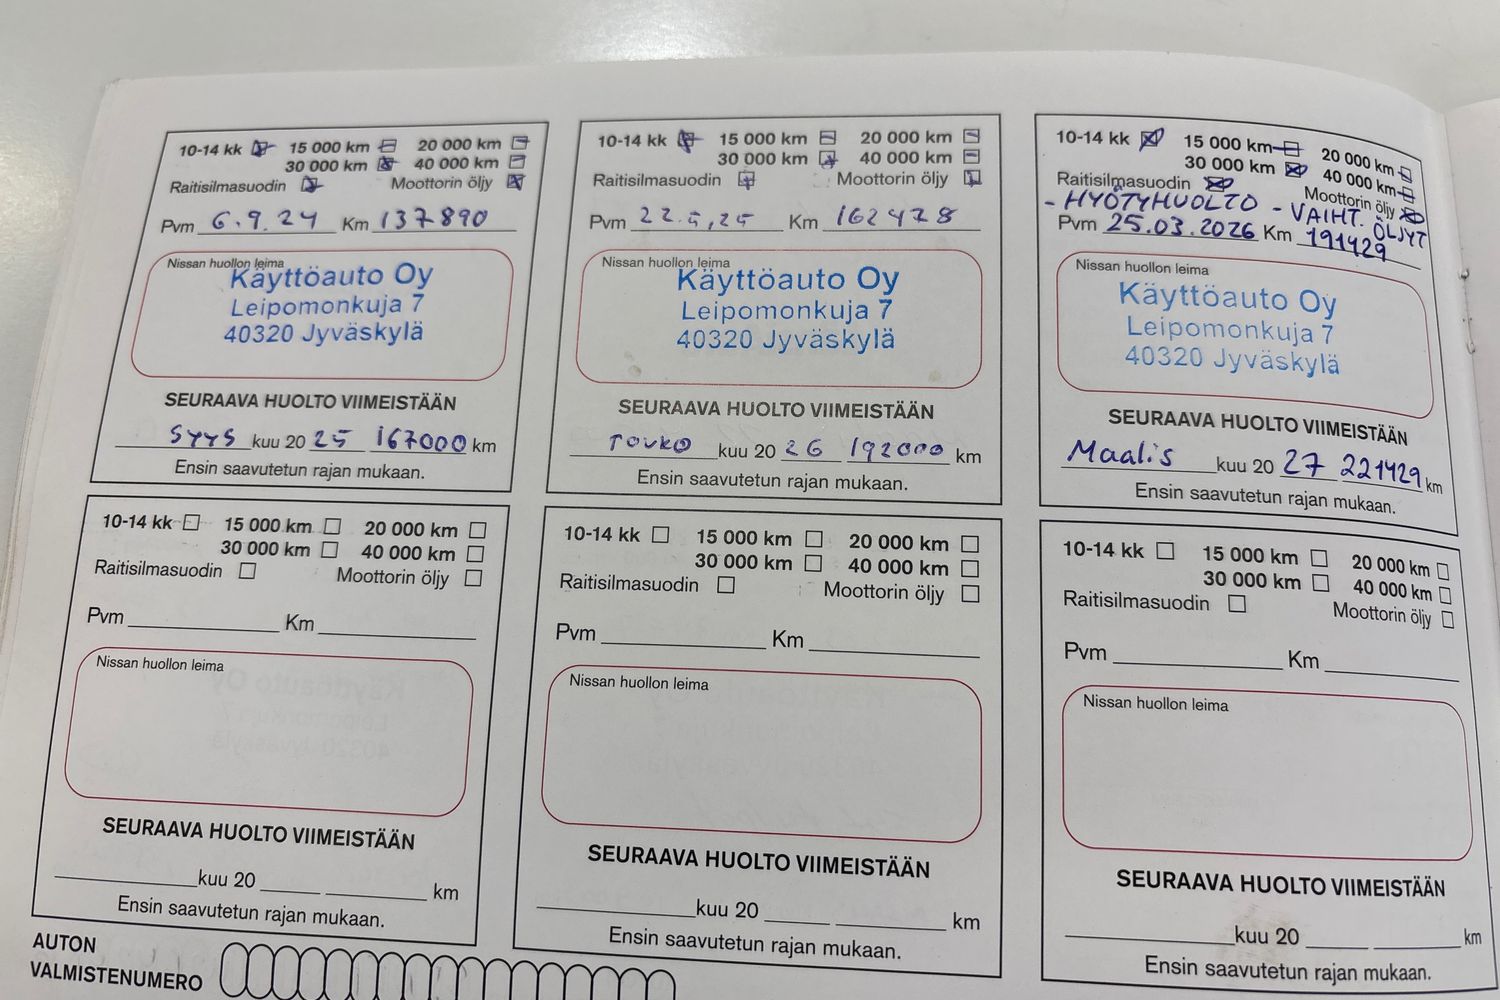 10-14 kk 15 000 km 20 000 km
30 000 km 40 000 km
Raitisilmasuodin Moottorin öljy
Pvm 6.9.24 Km 137890
Nissan huollon leima
Käyttöauto Oy
Leipomonkuja 7
40320 Jyväskylä
SEURAAVA HUOLTO VIIMEISTÄÄN
SYYS kuu 20 25 167000 km
Ensin saavutetun rajan mukaan.
10-14 kk 15 000 km 20 000 km
30 000 km 40 000 km
Raitisilmasuodin Moottorin öljy
Pvm 22.5.25 Km 162478
Nissan huollon leima
Käyttöauto Oy
Leipomonkuja 7
40320 Jyväskylä
SEURAAVA HUOLTO VIIMEISTÄÄN
TOUKO kuu 20 26 192000 km
Ensin saavutetun rajan mukaan.
10-14 kk 15 000 km 20 000 km
30 000 km 40 000 km
Raitisilmasuodin Moottorin öljy
- HYÖTYHUOLTO - VAIHT. ÖLJYT
Pvm 25.03.2026 Km 191429
Nissan huollon leima
Käyttöauto Oy
Leipomonkuja 7
40320 Jyväskylä
SEURAAVA HUOLTO VIIMEISTÄÄN
Maalis kuu 20 27 221429 km
Ensin saavutetun rajan mukaan.
10-14 kk 15 000 km 20 000 km
30 000 km 40 000 km
Raitisilmasuodin Moottorin öljy
Pvm Km
Nissan huollon leima
SEURAAVA HUOLTO VIIMEISTÄÄN
kuu 20 km
Ensin saavutetun rajan mukaan.
10-14 kk 15 000 km 20 000 km
30 000 km 40 000 km
Raitisilmasuodin Moottorin öljy
Pvm Km
Nissan huollon leima
SEURAAVA HUOLTO VIIMEISTÄÄN
kuu 20 km
Ensin saavutetun rajan mukaan.
10-14 kk 15 000 km 20 000 km
30 000 km 40 000 km
Raitisilmasuodin Moottorin öljy
Pvm Km
Nissan huollon leima
SEURAAVA HUOLTO VIIMEISTÄÄN
kuu 20 km
Ensin saavutetun rajan mukaan.
AUTON
VALMISTENUMERO